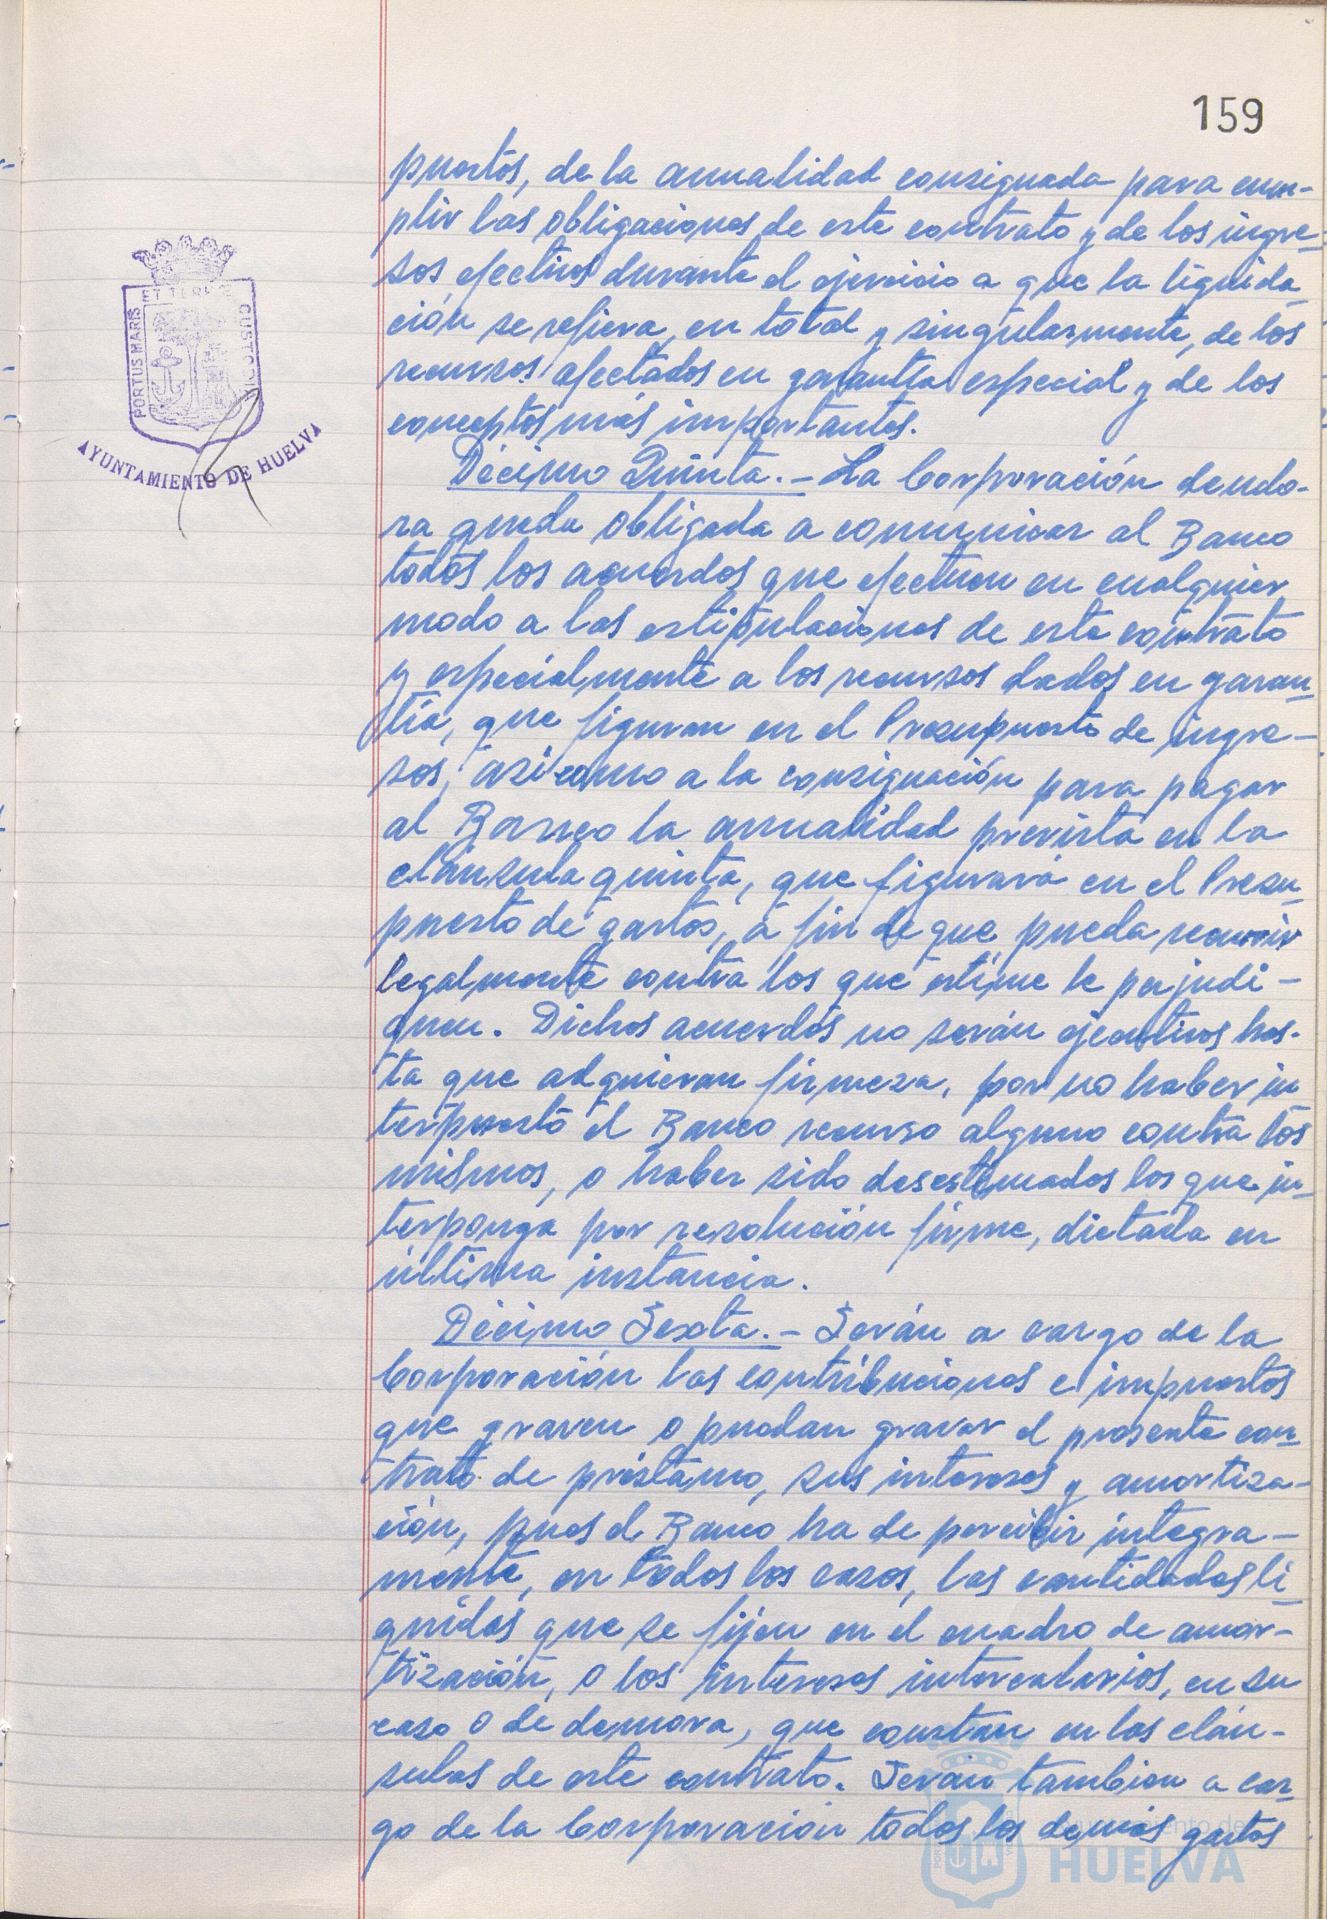 159
puestos, de la anualidad consignada para cum-
plir las obligaciones de este contrato y de los ingre-
sos efectivos durante el ejercicio a que la liquida
ción se refiera, en total y singularmente, de los
recursos afectados en garantía especial y de los
conceptos más importantes.
Décimo Quinta.- La Corporación deudo-
ra queda obligada a comunicar al Banco
todos los acuerdos que efectuen en cualquier
modo a las estipulaciones de este contrato
y especialmente a los recursos dados en garan-
tía, que figuran en el Presupuesto de ingre-
sos, asi como a la consignación para pagar
al Banco la anualidad prevista en la
cláusula quinta, que figurará en el Presu-
puesto de gastos, a fin de que pueda recurrir
legalmente contra los que estime le perjudi-
quen. Dichos acuerdos no serán ejecutivos has-
ta que adquieran firmeza, por no haber in
terpuesto el Banco recurso alguno contra los
mismos, o haber sido desestimados los que in-
terponga por resolución firme, dictada en
última instancia.
Décimo Sexta.- Serán a cargo de la
Corporación las contribuciones e impuestos
que graven o puedan gravar el presente con-
trato de préstamo, sus intereses y amortiza-
ción, pues el Banco ha de percibir integra-
mente, en todos los casos, las cantidades lí-
quidas que se fijen en el cuadro de amor-
tización, o los intereses intercalarios, en su
caso o de demora, que constan en las cláu-
sulas de este contrato. Serán tambien a car-
go de la Corporación todos los demás gastos
PORTUS MARIS
ET TERRE
CUSTODIA
AYUNTAMIENTO DE HUELVA
Ayuntamiento de
HUELVA